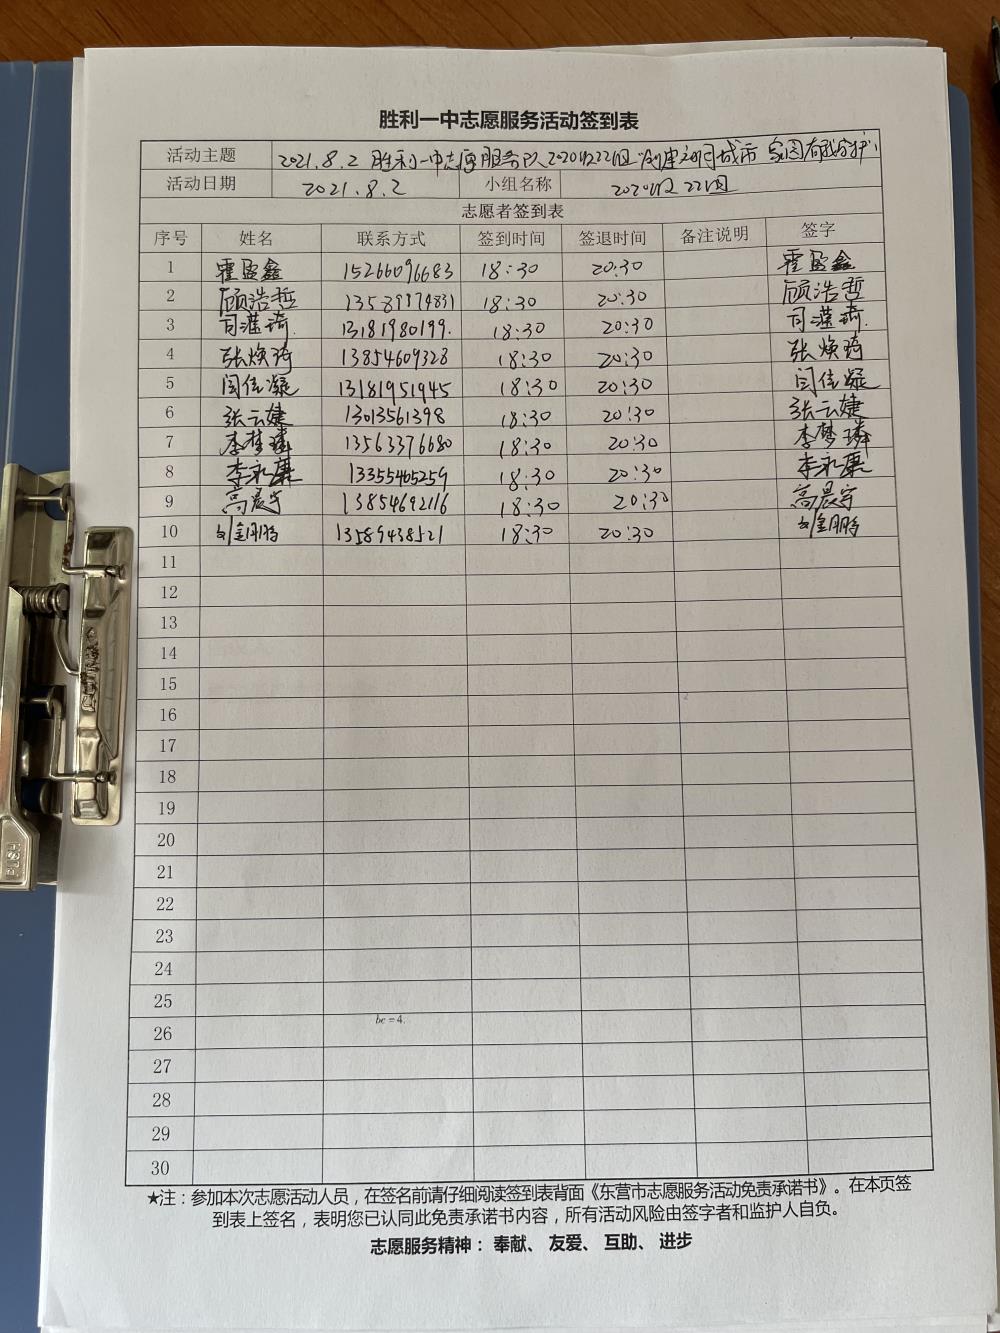 胜利一中志愿服务活动签到表
活动主题 2021.8.2 胜利一中志愿服务队2020级22团"创建文明城市 家园有我守护"
活动日期 2021.8.2 小组名称 2020级22团
志愿者签到表
序号 姓名 联系方式 签到时间 签退时间 备注说明 签字
1 霍盈鑫 15266096683 18:30 20:30 霍盈鑫
2 顾浩哲 13589974831 18:30 20:30 顾浩哲
3 司滢琦 13181980199. 18:30 20:30 司滢琦.
4 张焕琦 13854609328 18:30 20:30 张焕琦
5 闫佳凝 13181951945 18:30 20:30 闫佳凝
6 张云婕 13013561398 18:30 20:30 张云婕
7 李梦璘 13563376680 18:30 20:30 李梦璘
8 李永廉 13355405259 18:30 20:30 李永廉
9 高晨宇 13854692116 18:30 20:30 高晨宇
10 刘鲲鹏 13589438521 18:30 20:30 刘鲲鹏
11
12
13
14
15
16
17
18
19
20
21
22
23
24
25
26 bc=4.
27
28
29
30
★注：参加本次志愿活动人员，在签名前请仔细阅读签到表背面《东营市志愿服务活动免责承诺书》。在本页签
到表上签名，表明您已认同此免责承诺书内容，所有活动风险由签字者和监护人自负。
志愿服务精神：奉献、友爱、互助、进步